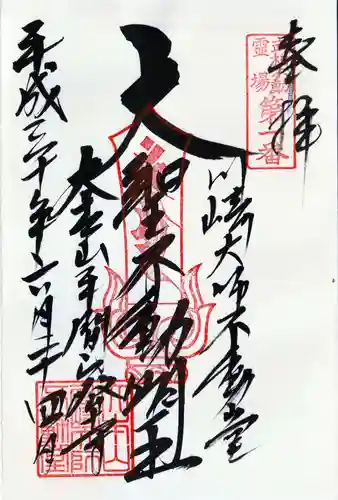 奉拝
霊場
第一番
川崎大師不動堂
大聖不動明王
大本山平間山平間寺
平成三十年六月二十四日